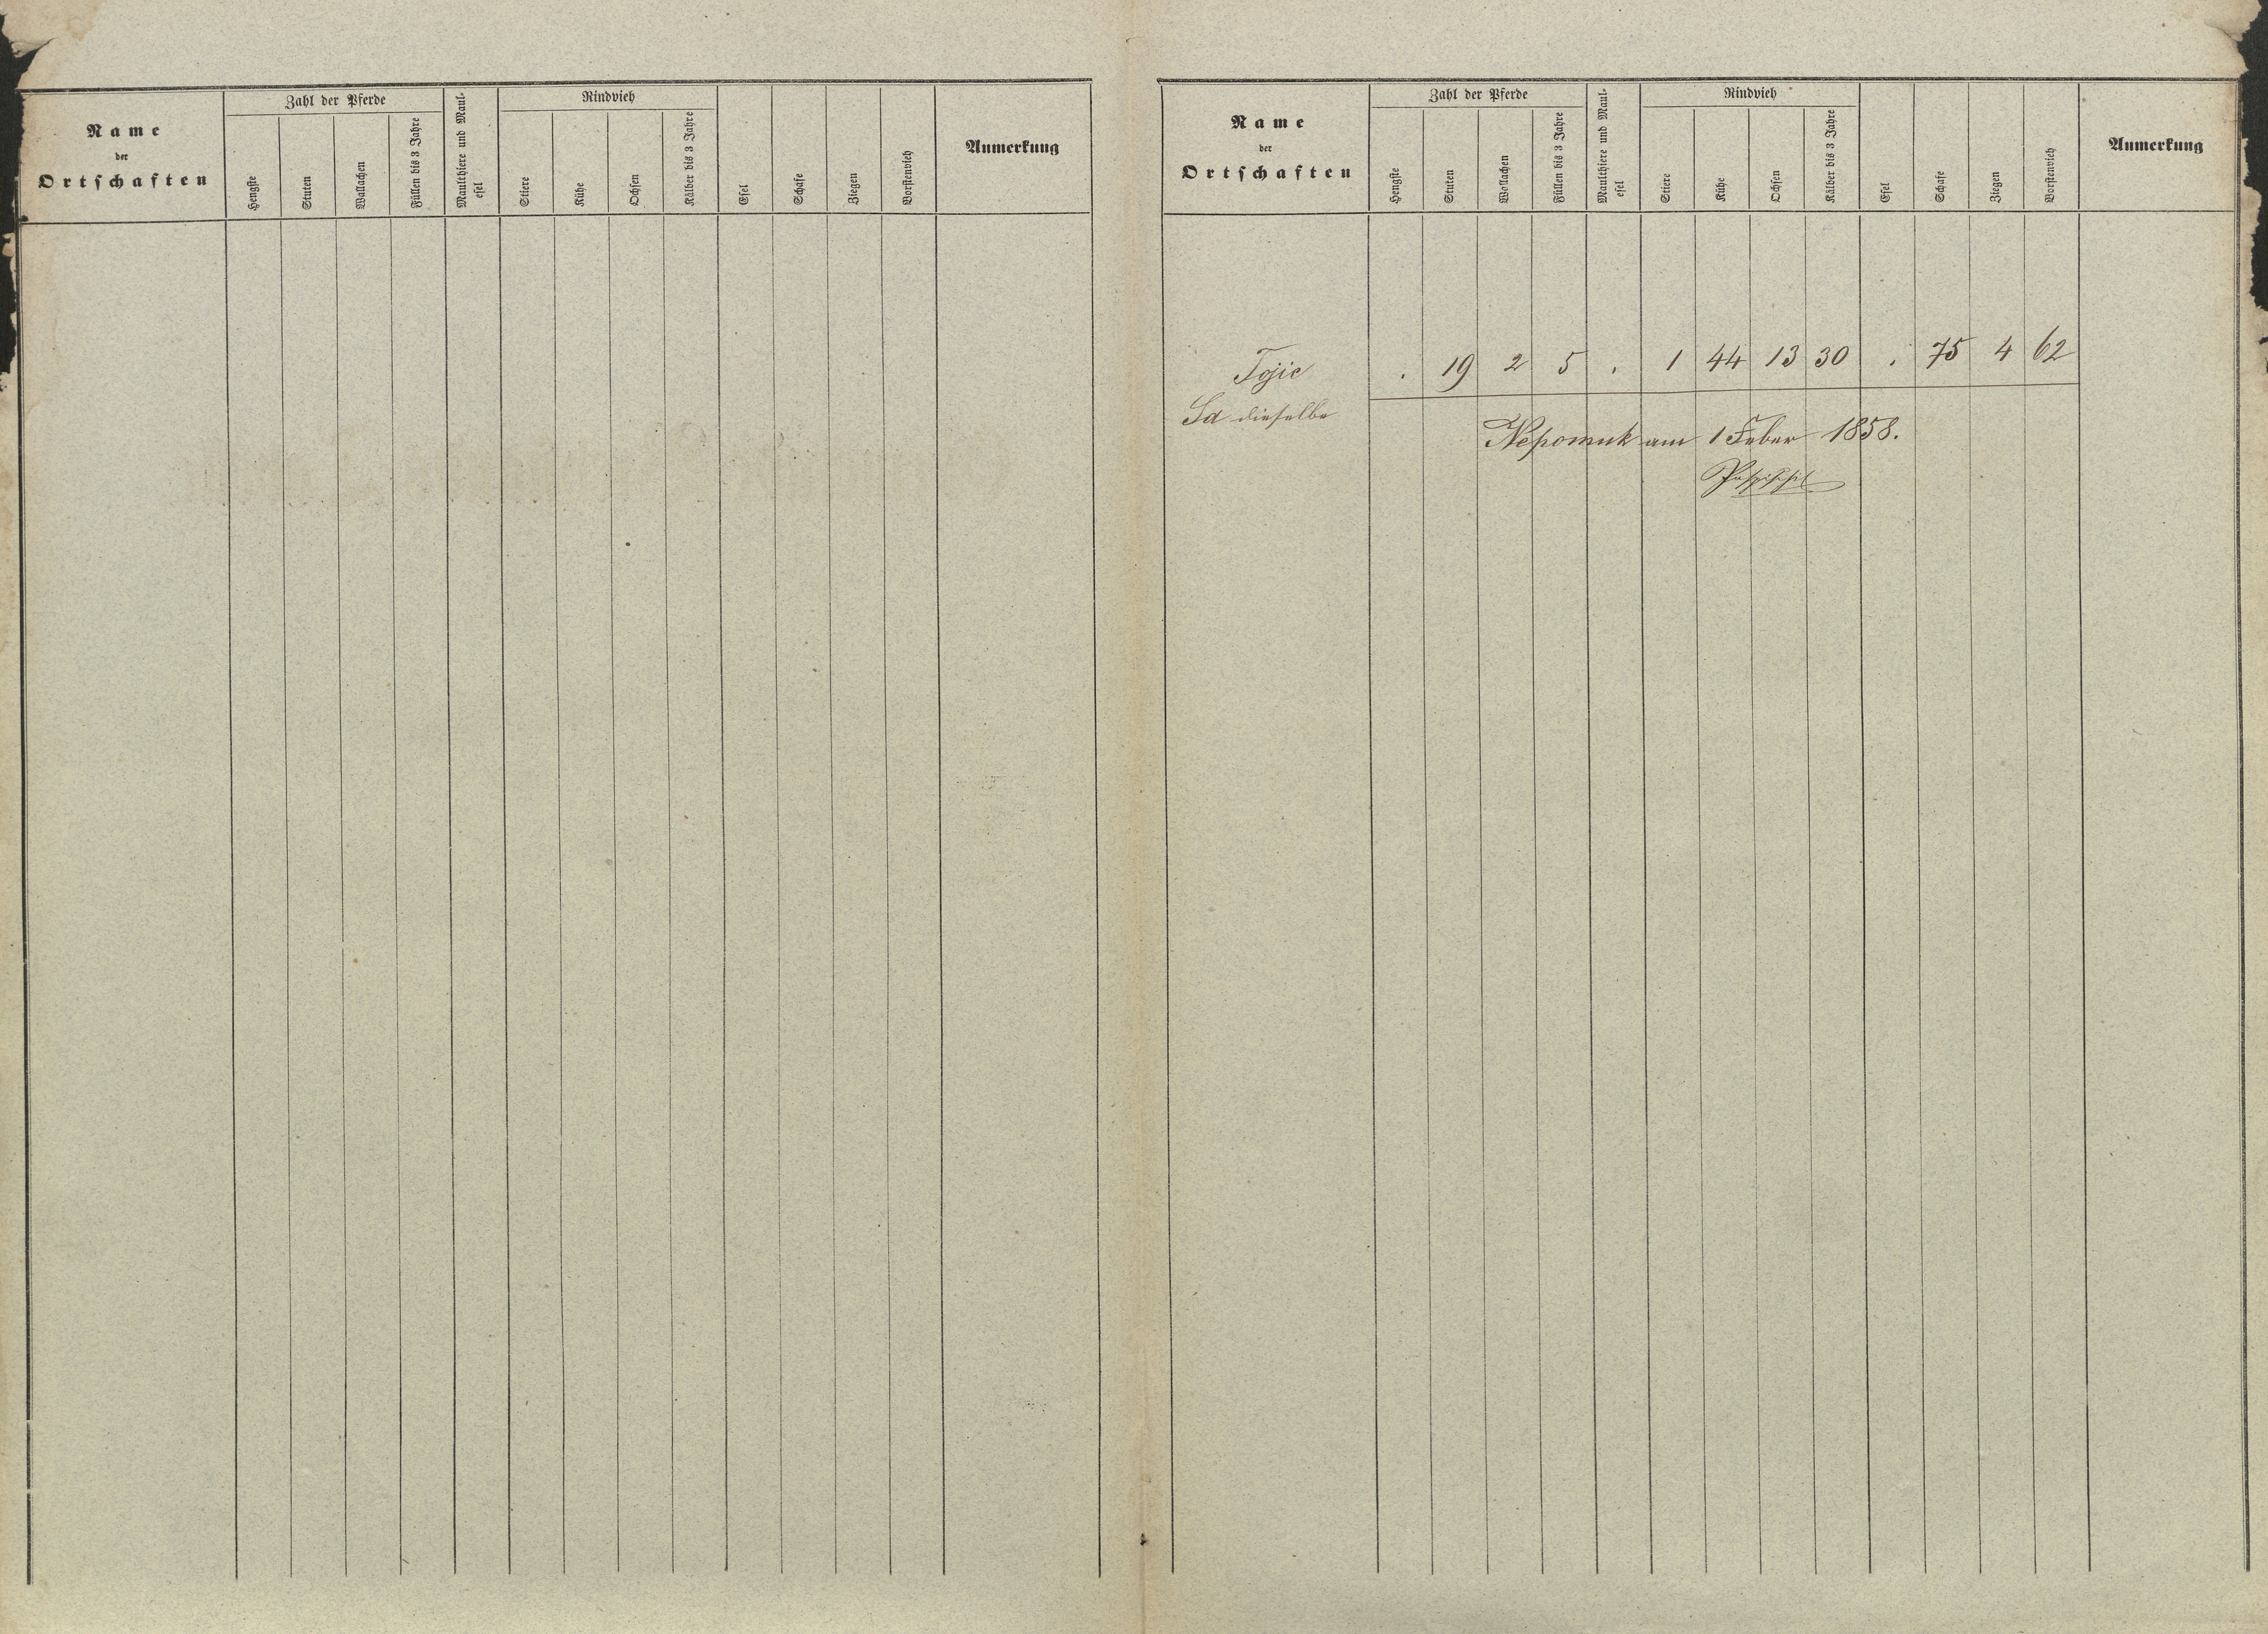 Name
der
Ortschaften
Zahl der Pferde
Hengste
Stuten
Wallachen
Füllen bis 3 Jahre
Maulthiere und Maul-
esel
Rindvieh
Stiere
Kühe
Ochsen
Kälber bis 3 Jahre
Esel
Schafe
Ziegen
Borstenvieh
Anmerkung
Name
der
Ortschaften
Zahl der Pferde
Hengste
Stuten
Wallachen
Füllen bis 3 Jahre
Maulthiere und Maul-
esel
Rindvieh
Stiere
Kühe
Ochsen
Kälber bis 3 Jahre
Esel
Schafe
Ziegen
Borstenvieh
Anmerkung
Tojic . 19 2 5 . 1 44 13 30 . 75 4 62
Sa dieselbe
Nepomuk am 1 Feber 1858.